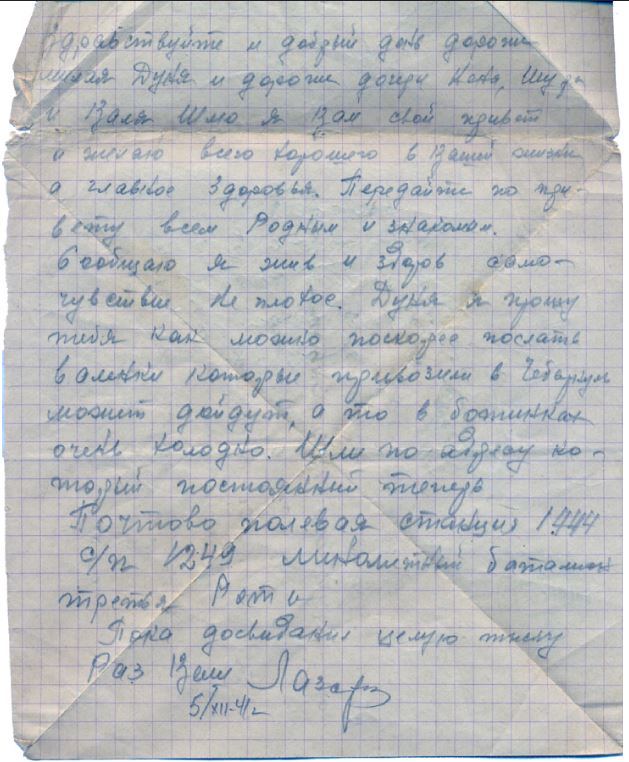 Здравствуйте и добрый день дорожи
милая Дуня и дорожи дочери Катя, Шура
и Валя Шлю я Вам свой привет
и желаю всего хорошего в вашей жизни
а главное здоровья. Передайте по при-
вету всем Родным и знакомым.
Сообщаю я жив и здоров само-
чувствие не плохое. Дуня я прошу
тебя как можно поскорее послать
валинки которые привозили в Чебаркуль
может дойдут, а то в ботинках
очень холодно. Шли по адресу ко-
торый постоянный теперь
Почтово полевая станция 1444
с/п 1249 минометный баталион
третья Рота
Пока досвидание целую тысяу
Раз Вели Лазарь
5/XII-41г